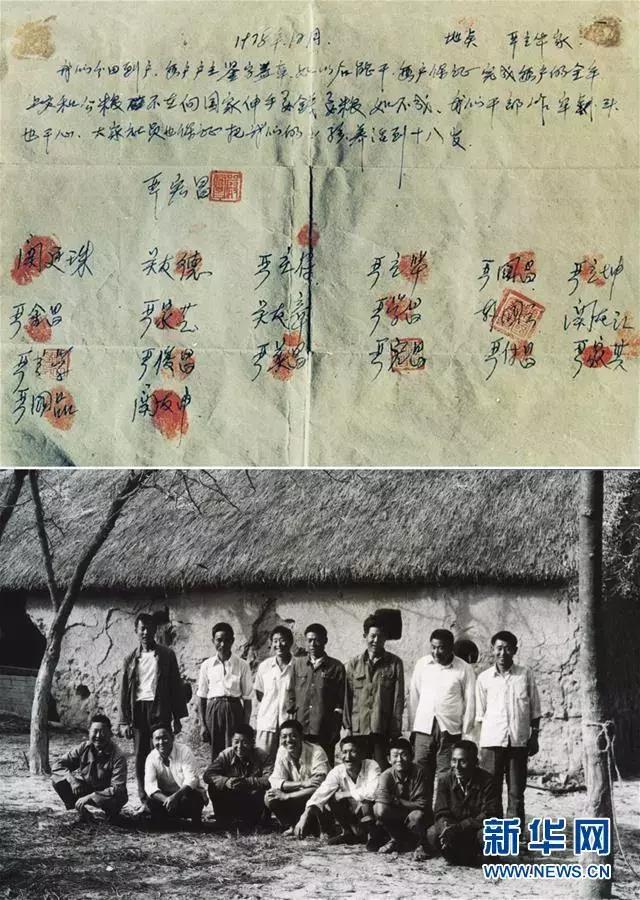 1978年12月. 地点 严立华家.
我们分田到户，每户户主鉴字盖章，如以后能干，每户保证完成每户的全年
上交和公粮 不在向国家伸手要钱要粮 如不成，我们干部作牢刹头
也干心，大家社员也保证把我们的小孩养活到十八岁.
严宏昌
关廷珠 关友德 严立符 严立华 严国昌 严立坤
严金昌 严家芝 关友章 严学昌 韩国云 关友江
严立学 严俊昌 严美昌 严宏昌 严付昌 严家其
严国品 关友申
新华网
WWW.NEWS.CN